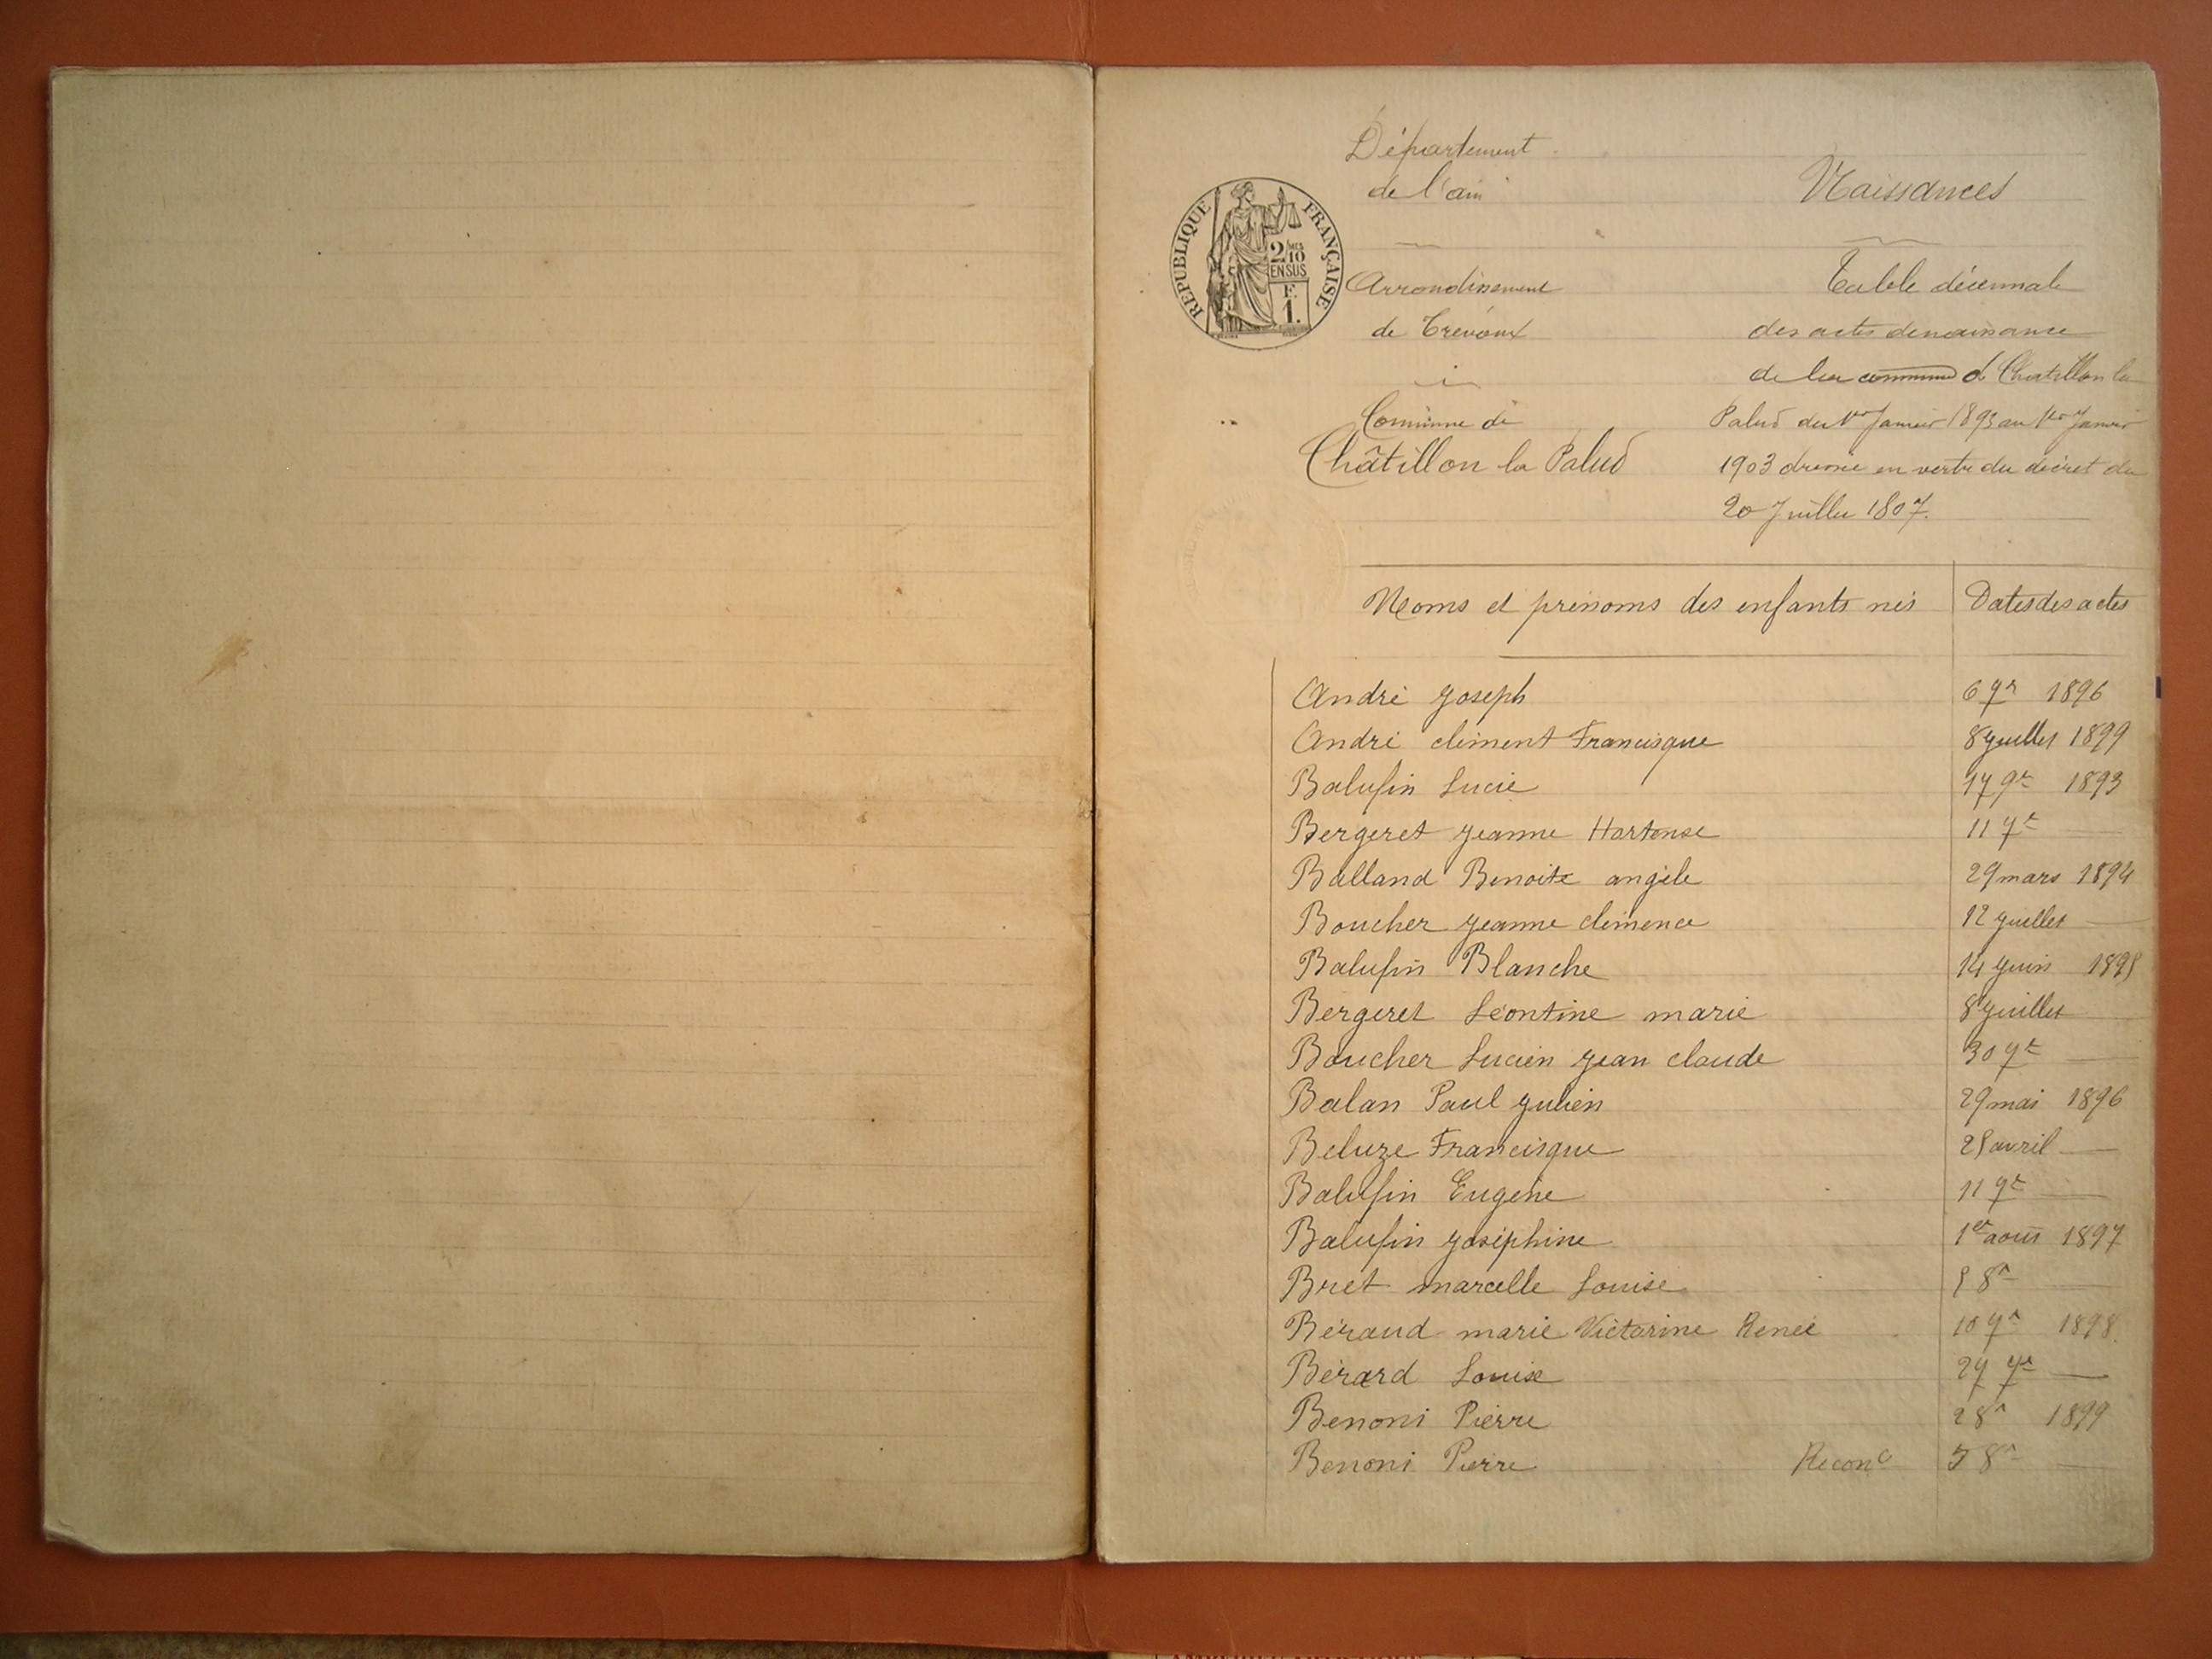 Département
de l'ain
Naissances
REPUBLIQUE FRANÇAISE
2/10
EN SUS
F.
1.
Arrondissement
de Trévoux
Table décennale
des actes de naissance
de la commune de Chatillon la
Palud du 1er Janvier 1893 au 1er Janvier
1903 dressée en vertu du décret du
20 Juillet 1807.
Commune de
Châtillon la Palud
Noms et prénoms des enfants nés Dates des actes
André Joseph 6 7r 1896
André clément Francisque 8 Juillet 1899
Balufin Lucie 17 9r 1893
Bergeret Jeanne Hortense 11 7r —
Balland Benoite angèle 29 mars 1894
Boucher Jeanne clémence 12 Juillet —
Balufin Blanche 14 Juin 1895
Bergeret Léontine marie 8 Juillet —
Boucher Lucien Jean claude 30 9r —
Balan Paul Julien 29 mai 1896
Beluze Francisque avril —
Balufin Eugène 11 9r —
Balufin Joséphine 1er aout 1897
Bret marcelle Louise 8r —
Béraud marie Victorine Renée 10 7r 1898
Bérard Louise 27 7r —
Benoni Pierre 2 8r 1899
Benoni Pierre Reconc 5 8r —